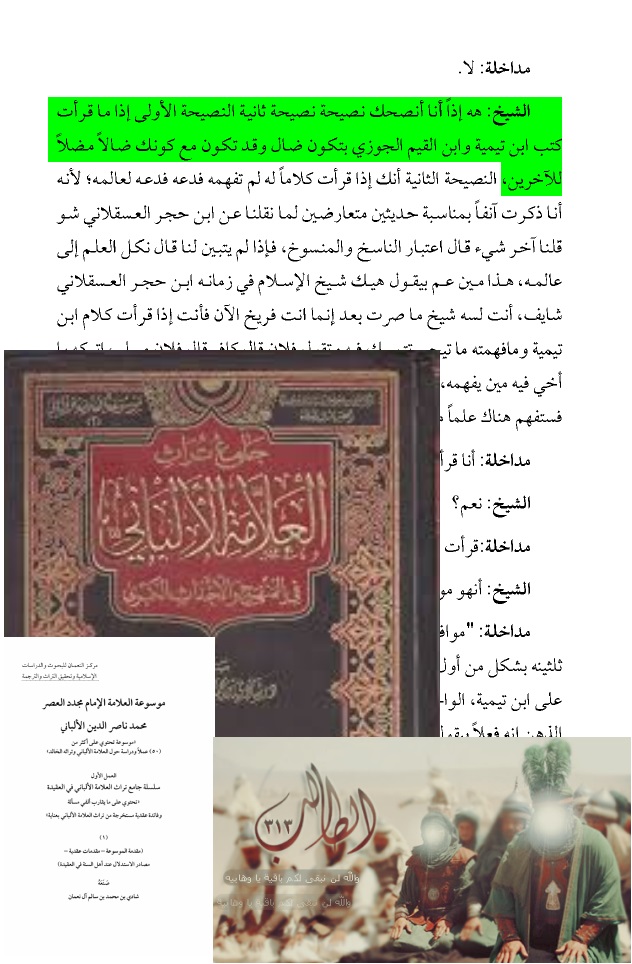 مداخلة: لا.
الشيخ: هه إذاً أنا أنصحك نصيحة نصيحة ثانية النصيحة الأولى إذا ما قرأت
كتب ابن تيمية وابن القيم الجوزي بتكون ضال وقد تكون مع كونك ضالاً مضلاً
للآخرين، النصيحة الثانية أنك إذا قرأت كلاماً له لم تفهمه فدعه فدعه لعالمه؛ لأنه
أنا ذكرت آنفاً بمناسبة حديثين متعارضين لما نقلنا عن ابن حجر العسقلاني شو
قلنا آخر شيء قال اعتبار الناسخ والمنسوخ، فإذا لم يتبين لنا قال نكل العلم إلى
عالمه، هذا مين عم بيقول هيك شيخ الإسلام في زمانه ابن حجر العسقلاني
شايف، أنت لسه شيخ ما صرت بعد إنما انت فريخ الآن فأنت إذا قرأت كلام ابن
تيمية ومافهمته ما تيجي
أخي فيه مين يفهمه،
فستفهم هناك علماً
مداخلة: أنا قرأ
الشيخ: نعم؟
مداخلة:قرأت
الشيخ: أنهو مو
مداخلة: "مواف
ثلثينه بشكل من أول
على ابن تيمية، الوا
الذهن إنه فعلاً يقول
جامع تراث
العلامة الألباني
في المنهج والأحداث الكبرى
مركز النعمان للبحوث والدراسات
الإسلامية وتحقيق التراث والترجمة
موسوعة العلامة الإمام مجدد العصر
محمد ناصر الدين الألباني
«موسوعة تحتوي على أكثر من
(٥٠) عملاً ودراسة حول العلامة الألباني وتراثه الخالد»
العمل الأول
سلسلة جامع تراث العلامة الألباني في العقيدة
«تحتوي على ما يقارب ألفي مسألة
وفائدة عقدية مستخرجة من تراث العلامة الألباني بعناية»
(١)
(مقدمة الموسوعة – مقدمات عقدية –
مصادر الاستدلال عند أهل السنة في العقيدة)
صَنَعَهُ
شادي بن محمد بن سالم آل نعمان
الطالب ٣١٣
والله لن تبقى لكم باقية يا وهابية
والله لن تبقى لكم باقية يا وهابية